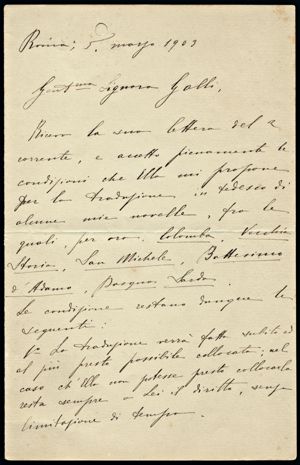 Roma, 5. marzo 1903
Gent.ma Signora Galli,
Ricevo la sua lettera del 2
corrente, e accetto pienamente le
condizioni che Ella mi propone
per la traduzione in tedesco di
alcune mie novelle, fra le
quali, per ora. Colomba, Vecchia
Storia, San Michele, Battesimo
d Adamo, Pasqua, Sardo.
Le condizione restano dunque le
seguenti:
1a La traduzione verrà fatta subito ed
al più presto possibile collocata; nel
caso ch'Ella non potesse presto collocarla
resta sempre a Lei il diritto, senza
limitazione di tempo.